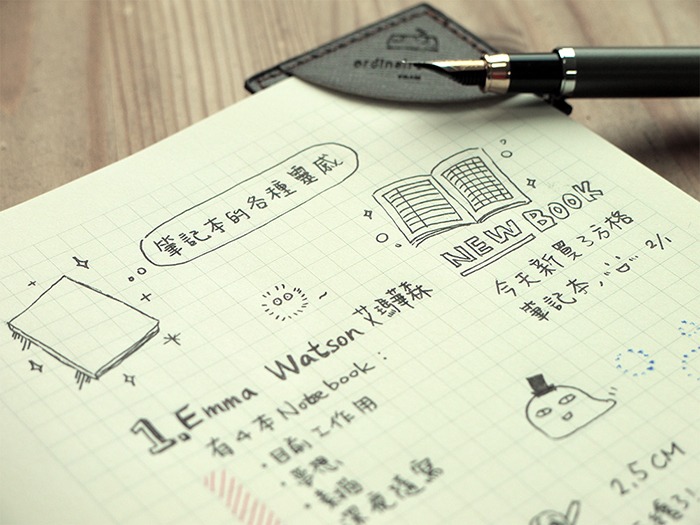 筆記本的各種靈感
NEW BOOK
今天新買了方格
筆記本 2/1
1. Emma Watson 艾瑪華森
有4本Notebook:
·目前工作用
·夢想
深度隨寫
2.5 CM